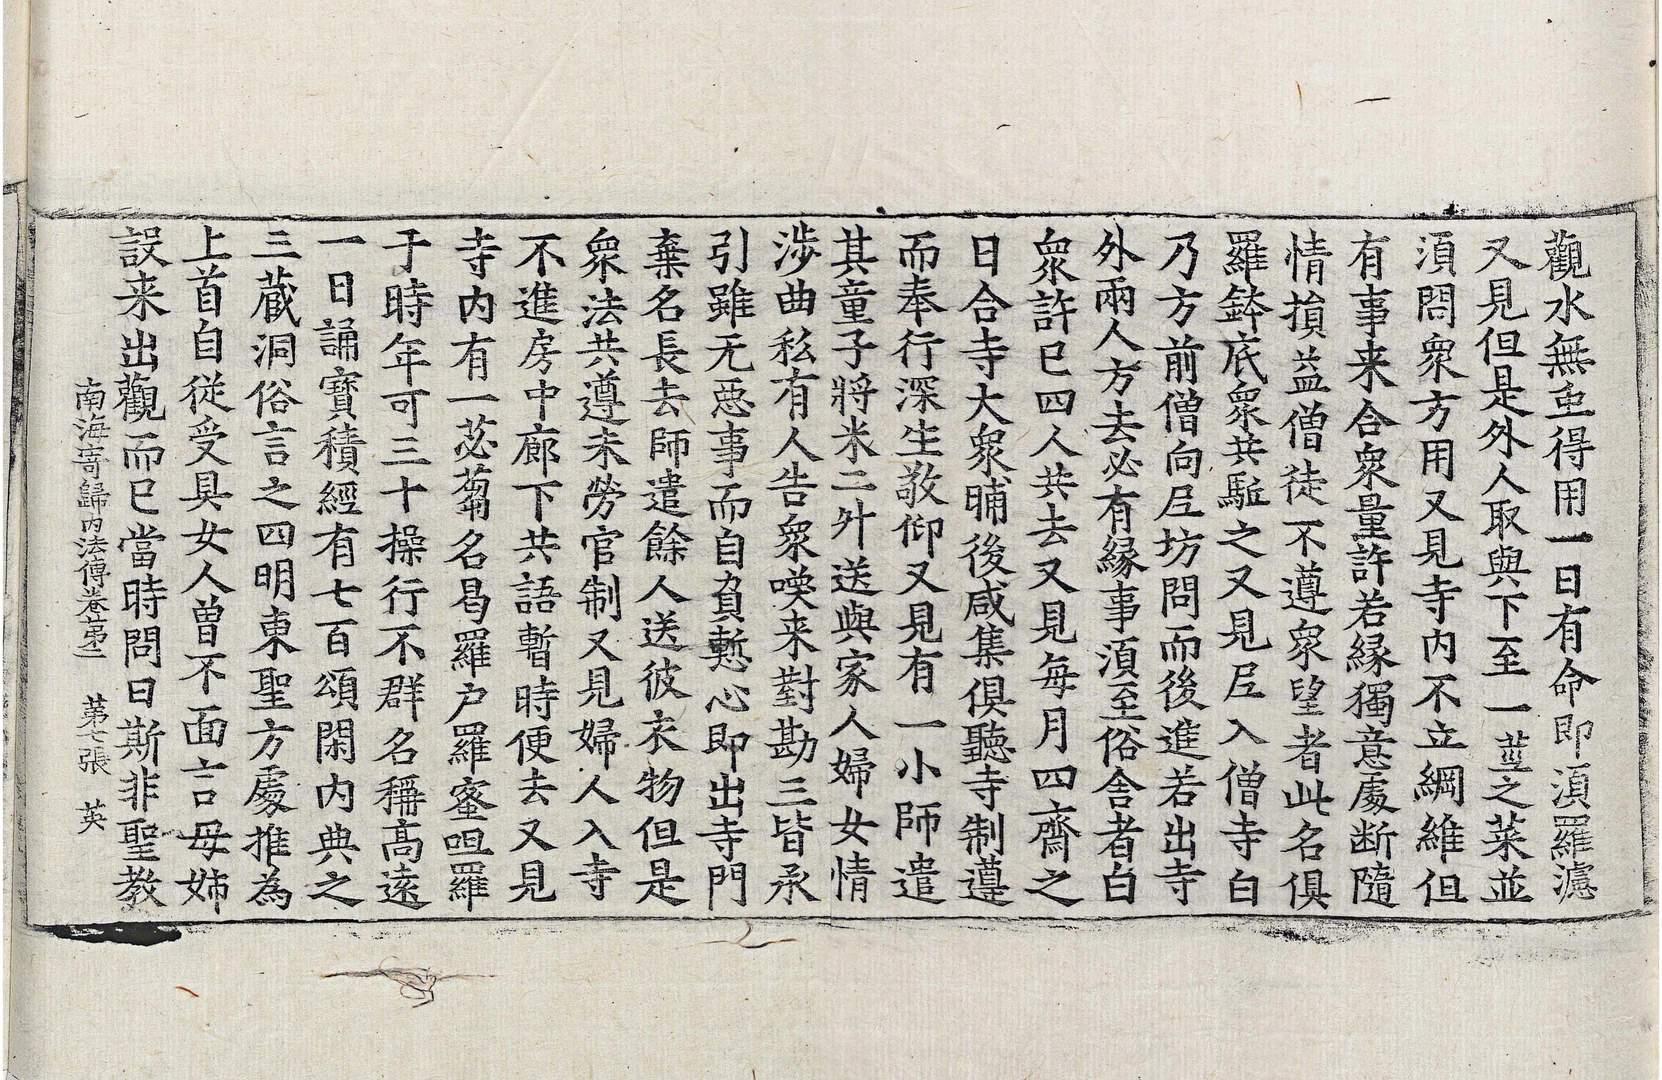 觀水無虫得用一日有命即湏羅濾
又見但是外人取與下至一莖之菜並
湏問衆方用又見寺内不立綱維但
有事来合衆量許若緣獨意處断隨
情損益僧徒不遵衆望者此名俱
羅鉢底衆共駈之又見尼入僧寺白
乃方前僧向尼坊問而後進若出寺
外兩人方去必有緣事湏至俗舎者白
衆許已四人共去又見每月四齋之
日合寺大衆晡後咸集俱聽寺制遵
而奉行深生敬仰又見有一小師遣
其童子將米二升送與家人婦女情
渉曲私有人告衆喚来對勘三皆承
引雖无惡事而自負慙心即出寺門
棄名長去師遣餘人送彼衣物但是
衆法共遵未勞官制又見婦人入寺
不進房中廊下共語暫時便去又見
寺内有一苾蒭名曷羅户羅蜜呾羅
于時年可三十操行不群名稱高遠
一日誦寶積經有七百頌閑内典之
三藏洞俗言之四明東聖方處推為
上首自従受具女人曽不面言母姉
設来出觀而已當時問曰斯非聖教
南海寄歸内法傳卷第二　第七張　英